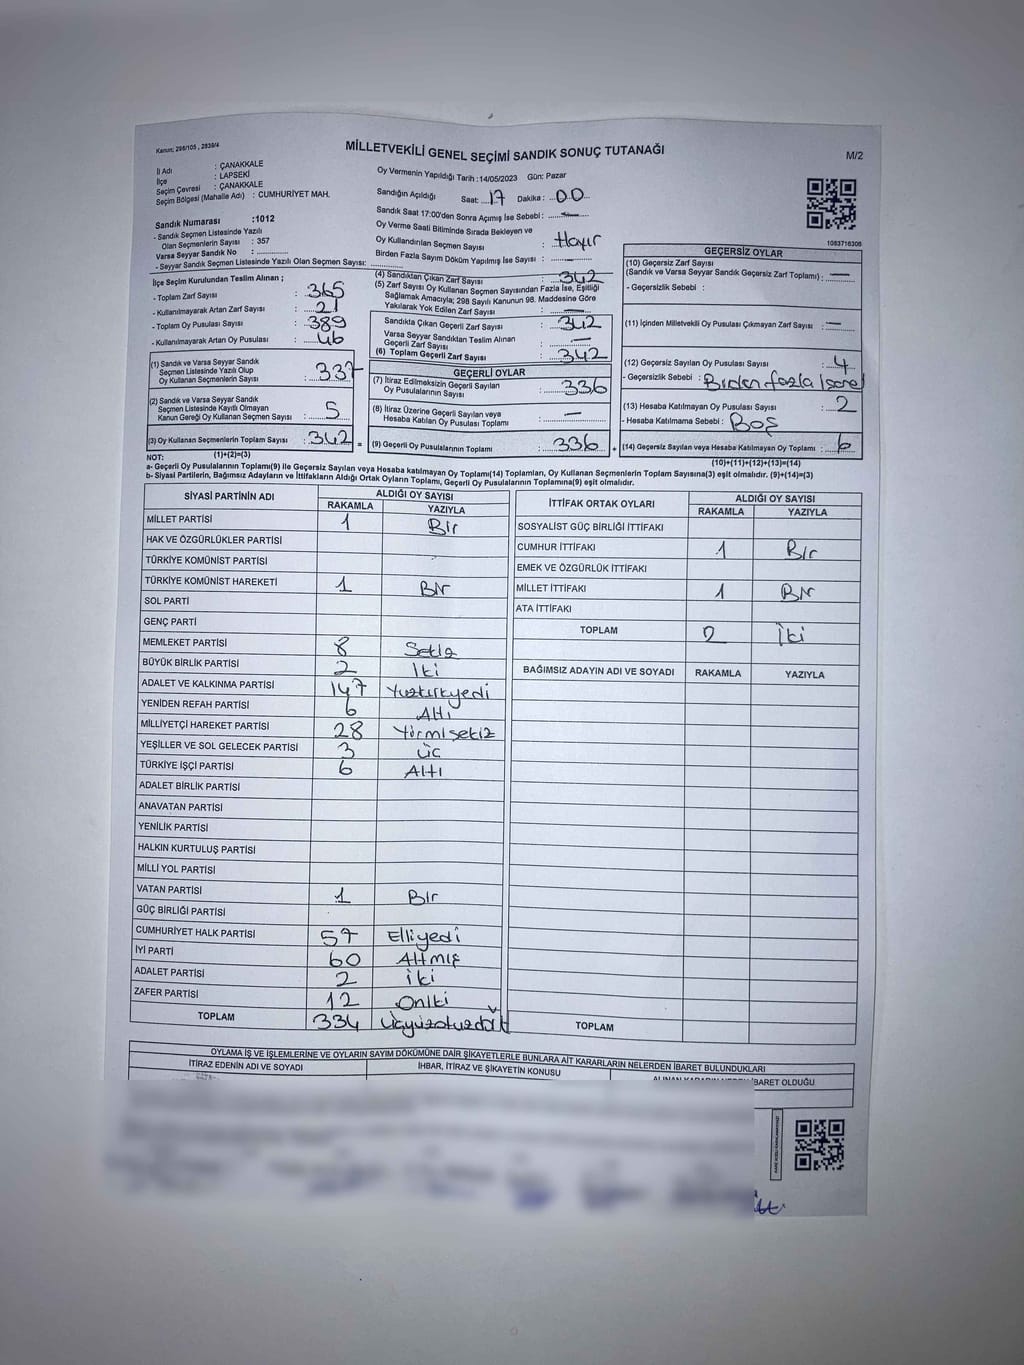 Kanun: 298/105 , 2839/4
MİLLETVEKİLİ GENEL SEÇİMİ SANDIK SONUÇ TUTANAĞI
M/2
İl Adı : ÇANAKKALE
İlçe : LAPSEKİ
Seçim Çevresi : ÇANAKKALE
Seçim Bölgesi (Mahalle Adı) : CUMHURİYET MAH.
Oy Vermenin Yapıldığı Tarih : 14/05/2023 Gün: Pazar
Sandığın Açıldığı Saat: 17 Dakika: 00
Sandık Saat 17:00'den Sonra Açılmış İse Sebebi : —
Oy Verme Saati Bitiminde Sırada Bekleyen ve
Oy Kullandırılan Seçmen Sayısı : Hayır
Birden Fazla Sayım Döküm Yapılmış İse Sayısı : —
1083716306
Sandık Numarası :1012
- Sandık Seçmen Listesinde Yazılı
Olan Seçmenlerin Sayısı : 357
Varsa Seyyar Sandık No :
- Seyyar Sandık Seçmen Listesinde Yazılı Olan Seçmen Sayısı:
İlçe Seçim Kurulundan Teslim Alınan ;
- Toplam Zarf Sayısı : 365
- Kullanılmayarak Artan Zarf Sayısı : 21
- Toplam Oy Pusulası Sayısı : 389
- Kullanılmayarak Artan Oy Pusulası : 46
(1) Sandık ve Varsa Seyyar Sandık
Seçmen Listesinde Yazılı Olup
Oy Kullanan Seçmenlerin Sayısı : 337
(2) Sandık ve Varsa Seyyar Sandık
Seçmen Listesinde Kayıtlı Olmayan
Kanun Gereği Oy Kullanan Seçmen Sayısı : 5
(3) Oy Kullanan Seçmenlerin Toplam Sayısı : 342 =
(4) Sandıktan Çıkan Zarf Sayısı : 342
(5) Zarf Sayısı Oy Kullanan Seçmen Sayısından Fazla İse, Eşitliği
Sağlamak Amacıyla; 298 Sayılı Kanunun 98. Maddesine Göre
Yakılarak Yok Edilen Zarf Sayısı : —
Sandıkta Çıkan Geçerli Zarf Sayısı : 342
Varsa Seyyar Sandıktan Teslim Alınan
Geçerli Zarf Sayısı : —
(6) Toplam Geçerli Zarf Sayısı : 342
GEÇERLİ OYLAR
(7) İtiraz Edilmeksizin Geçerli Sayılan
Oy Pusulalarının Sayısı : 336
(8) İtiraz Üzerine Geçerli Sayılan veya
Hesaba Katılan Oy Pusulası Toplamı : —
(9) Geçerli Oy Pusulalarının Toplamı : 336 +
GEÇERSİZ OYLAR
(10) Geçersiz Zarf Sayısı
(Sandık ve Varsa Seyyar Sandık Geçersiz Zarf Toplamı) : —
- Geçersizlik Sebebi :
(11) İçinden Milletvekili Oy Pusulası Çıkmayan Zarf Sayısı : —
(12) Geçersiz Sayılan Oy Pusulası Sayısı : 4
- Geçersizlik Sebebi : Birden fazla İşaret
(13) Hesaba Katılmayan Oy Pusulası Sayısı : 2
- Hesaba Katılmama Sebebi : Boş
(14) Geçersiz Sayılan veya Hesaba Katılmayan Oy Toplamı : 6
NOT: (1)+(2)=(3)
(10)+(11)+(12)+(13)=(14)
a- Geçerli Oy Pusulalarının Toplamı(9) ile Geçersiz Sayılan veya Hesaba katılmayan Oy Toplamı(14) Toplamları, Oy Kullanan Seçmenlerin Toplam Sayısına(3) eşit olmalıdır. (9)+(14)=(3)
b- Siyasi Partilerin, Bağımsız Adayların ve İttifakların Aldığı Ortak Oyların Toplamı, Geçerli Oy Pusulalarının Toplamına(9) eşit olmalıdır.
SİYASİ PARTİNİN ADI ALDIĞI OY SAYISI
RAKAMLA YAZIYLA
MİLLET PARTİSİ 1 Bir
HAK VE ÖZGÜRLÜKLER PARTİSİ
TÜRKİYE KOMÜNİST PARTİSİ
TÜRKİYE KOMÜNİST HAREKETİ 1 Bir
SOL PARTİ
GENÇ PARTİ
MEMLEKET PARTİSİ 8 Sekiz
BÜYÜK BİRLİK PARTİSİ 2 İki
ADALET VE KALKINMA PARTİSİ 147 Yüzkırkyedi
YENİDEN REFAH PARTİSİ 6 Altı
MİLLİYETÇİ HAREKET PARTİSİ 28 Yirmisekiz
YEŞİLLER VE SOL GELECEK PARTİSİ 3 üç
TÜRKİYE İŞÇİ PARTİSİ 6 Altı
ADALET BİRLİK PARTİSİ
ANAVATAN PARTİSİ
YENİLİK PARTİSİ
HALKIN KURTULUŞ PARTİSİ
MİLLİ YOL PARTİSİ
VATAN PARTİSİ 1 Bir
GÜÇ BİRLİĞİ PARTİSİ
CUMHURİYET HALK PARTİSİ 57 Elliyedi
İYİ PARTİ 60 Altmış
ADALET PARTİSİ 2 iki
ZAFER PARTİSİ 12 Oniki
TOPLAM 334 Üçyüzotuzdört
İTTİFAK ORTAK OYLARI ALDIĞI OY SAYISI
RAKAMLA YAZIYLA
SOSYALİST GÜÇ BİRLİĞİ İTTİFAKI
CUMHUR İTTİFAKI 1 Bir
EMEK VE ÖZGÜRLÜK İTTİFAKI
MİLLET İTTİFAKI 1 Bir
ATA İTTİFAKI
TOPLAM 2 İki
BAĞIMSIZ ADAYIN ADI VE SOYADI RAKAMLA YAZIYLA
TOPLAM
OYLAMA İŞ VE İŞLEMLERİNE VE OYLARIN SAYIM DÖKÜMÜNE DAİR ŞİKAYETLERLE BUNLARA AİT KARARLARIN NELERDEN İBARET BULUNDUKLARI
İTİRAZ EDENİN ADI VE SOYADI İHBAR, İTİRAZ VE ŞİKAYETİN KONUSU İBARET OLDUĞU